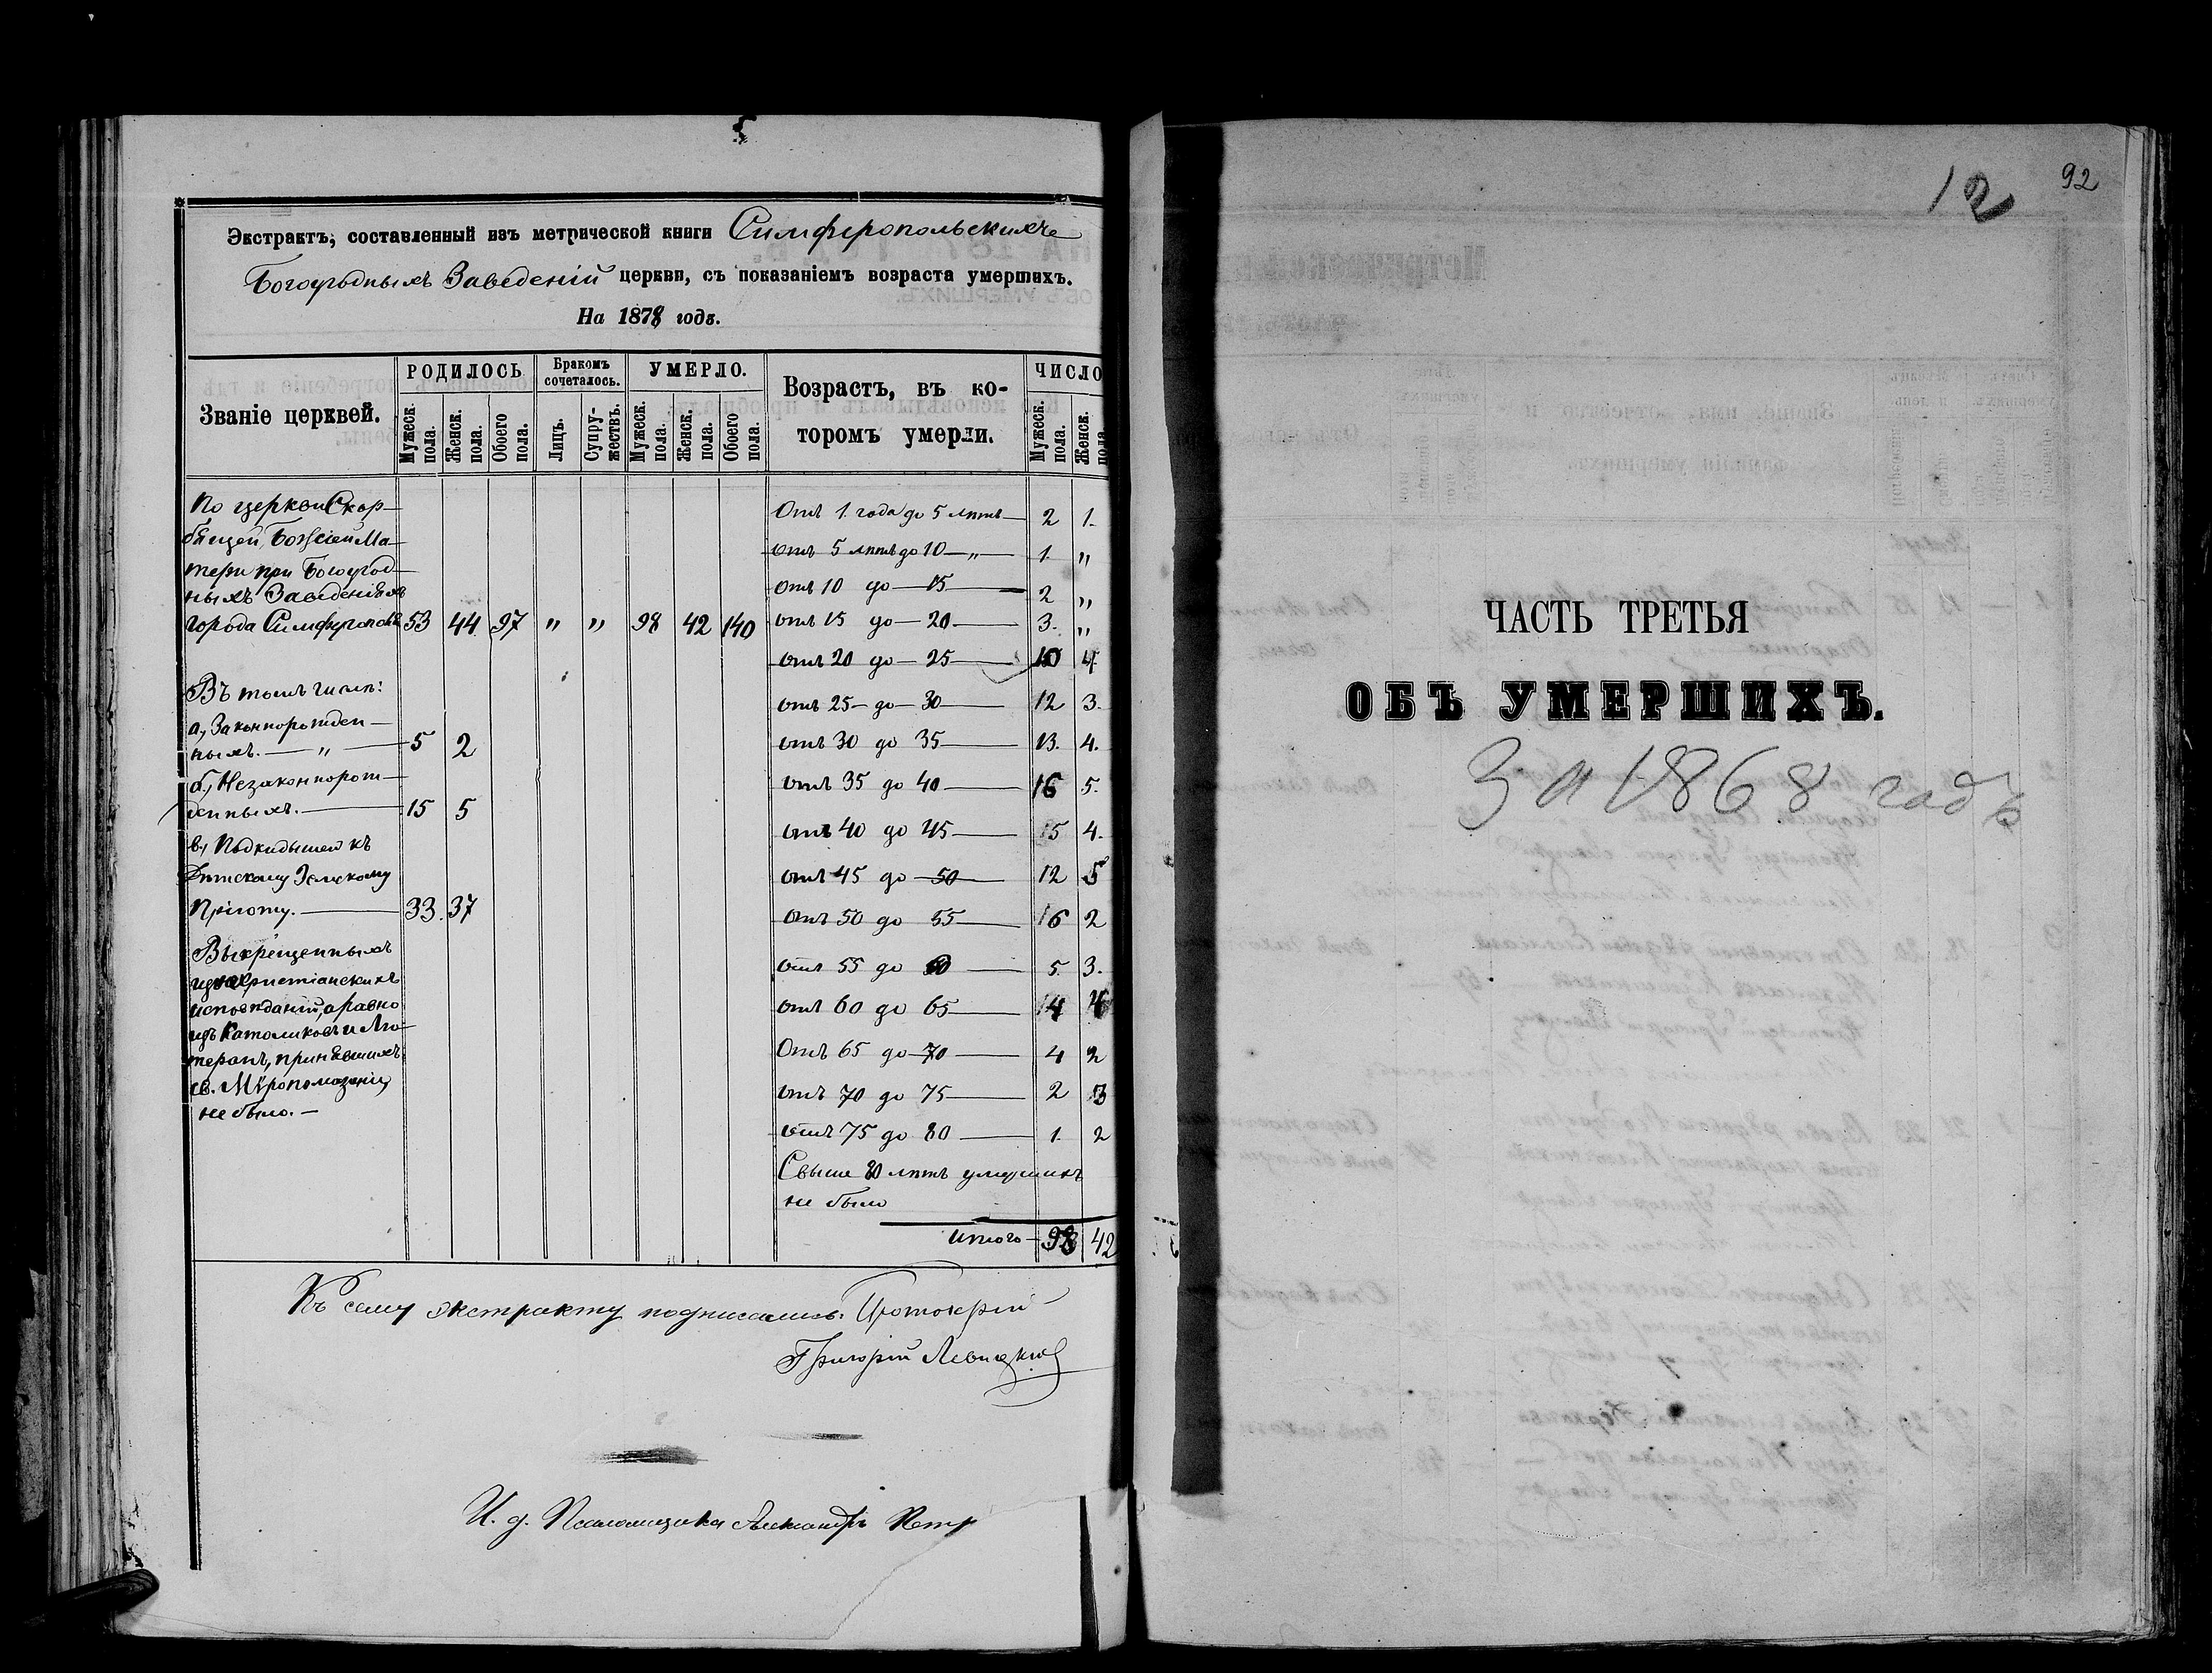 5
Экстрактъ, составленный изъ метрической книги Симферопольскихъ
Богоугодныхъ Заведеній церкви, съ показаніемъ возраста умершихъ.
На 1878 годъ.
Званіе церквей.
РОДИЛОСЬ
Мужеск. пола.
Женск. пола.
Обоего пола.
Бракомъ сочеталось.
Лицъ.
Супру-жествъ.
УМЕРЛО.
Мужеск. пола.
Женск. пола.
Обоего пола.
Возрастъ, въ ко-
торомъ умерли.
ЧИСЛО
Мужеск. пола.
Женск. пола
По церкви Скор-
бящей Божіей Ма-
тери при Богоугод-
ныхъ Заведеніяхъ
города Симферополя 53 44 97 " " 98 42 140
Въ томъ числѣ:
а, Законнорожден-
ныхъ. — " — 5 2
б, Незаконнорож-
денныхъ. — 15 5
в, Подкидышей къ
Дѣтскому Земскому
Пріюту. — 33. 37
Выкрещенныхъ
изъ нехристіанскихъ
исповѣданій, а равно
изъ Католиковъ и Лю-
теранъ, принявшихъ
св. Мѵропомазаніе,
не было. —
Отъ 1 года до 5 лѣтъ — 2 1.
отъ 5 лѣтъ до 10 — " — 1. "
отъ 10 до — 15 — 2 "
отъ 15 до — 20 — 3. "
отъ 20 до — 25 — 10 4
отъ 25 — до — 30 — 12 3.
отъ 30 до 35 — 13. 4.
отъ 35 до 40 — 16 5.
отъ 40 до 45 — 15 4.
отъ 45 до — 50 — 12 5
отъ 50 до 55 — 16 2
отъ 55 до 60 — 5. 3.
отъ 60 до 65 — 14 4
Отъ 65 до — 70 — 4 2
отъ 70 до 75 — 2 3
отъ 75 до 80 — 1. 2
Свыше 80 лѣтъ умершихъ
не было
Итого — 98 42
Къ сему экстракту подписались: Протоіерей
Григорій Левицкій
И. д. Псаломщика Александръ
12
92
ЧАСТЬ ТРЕТЬЯ
ОБЪ УМЕРШИХЪ.
За 1868 годъ